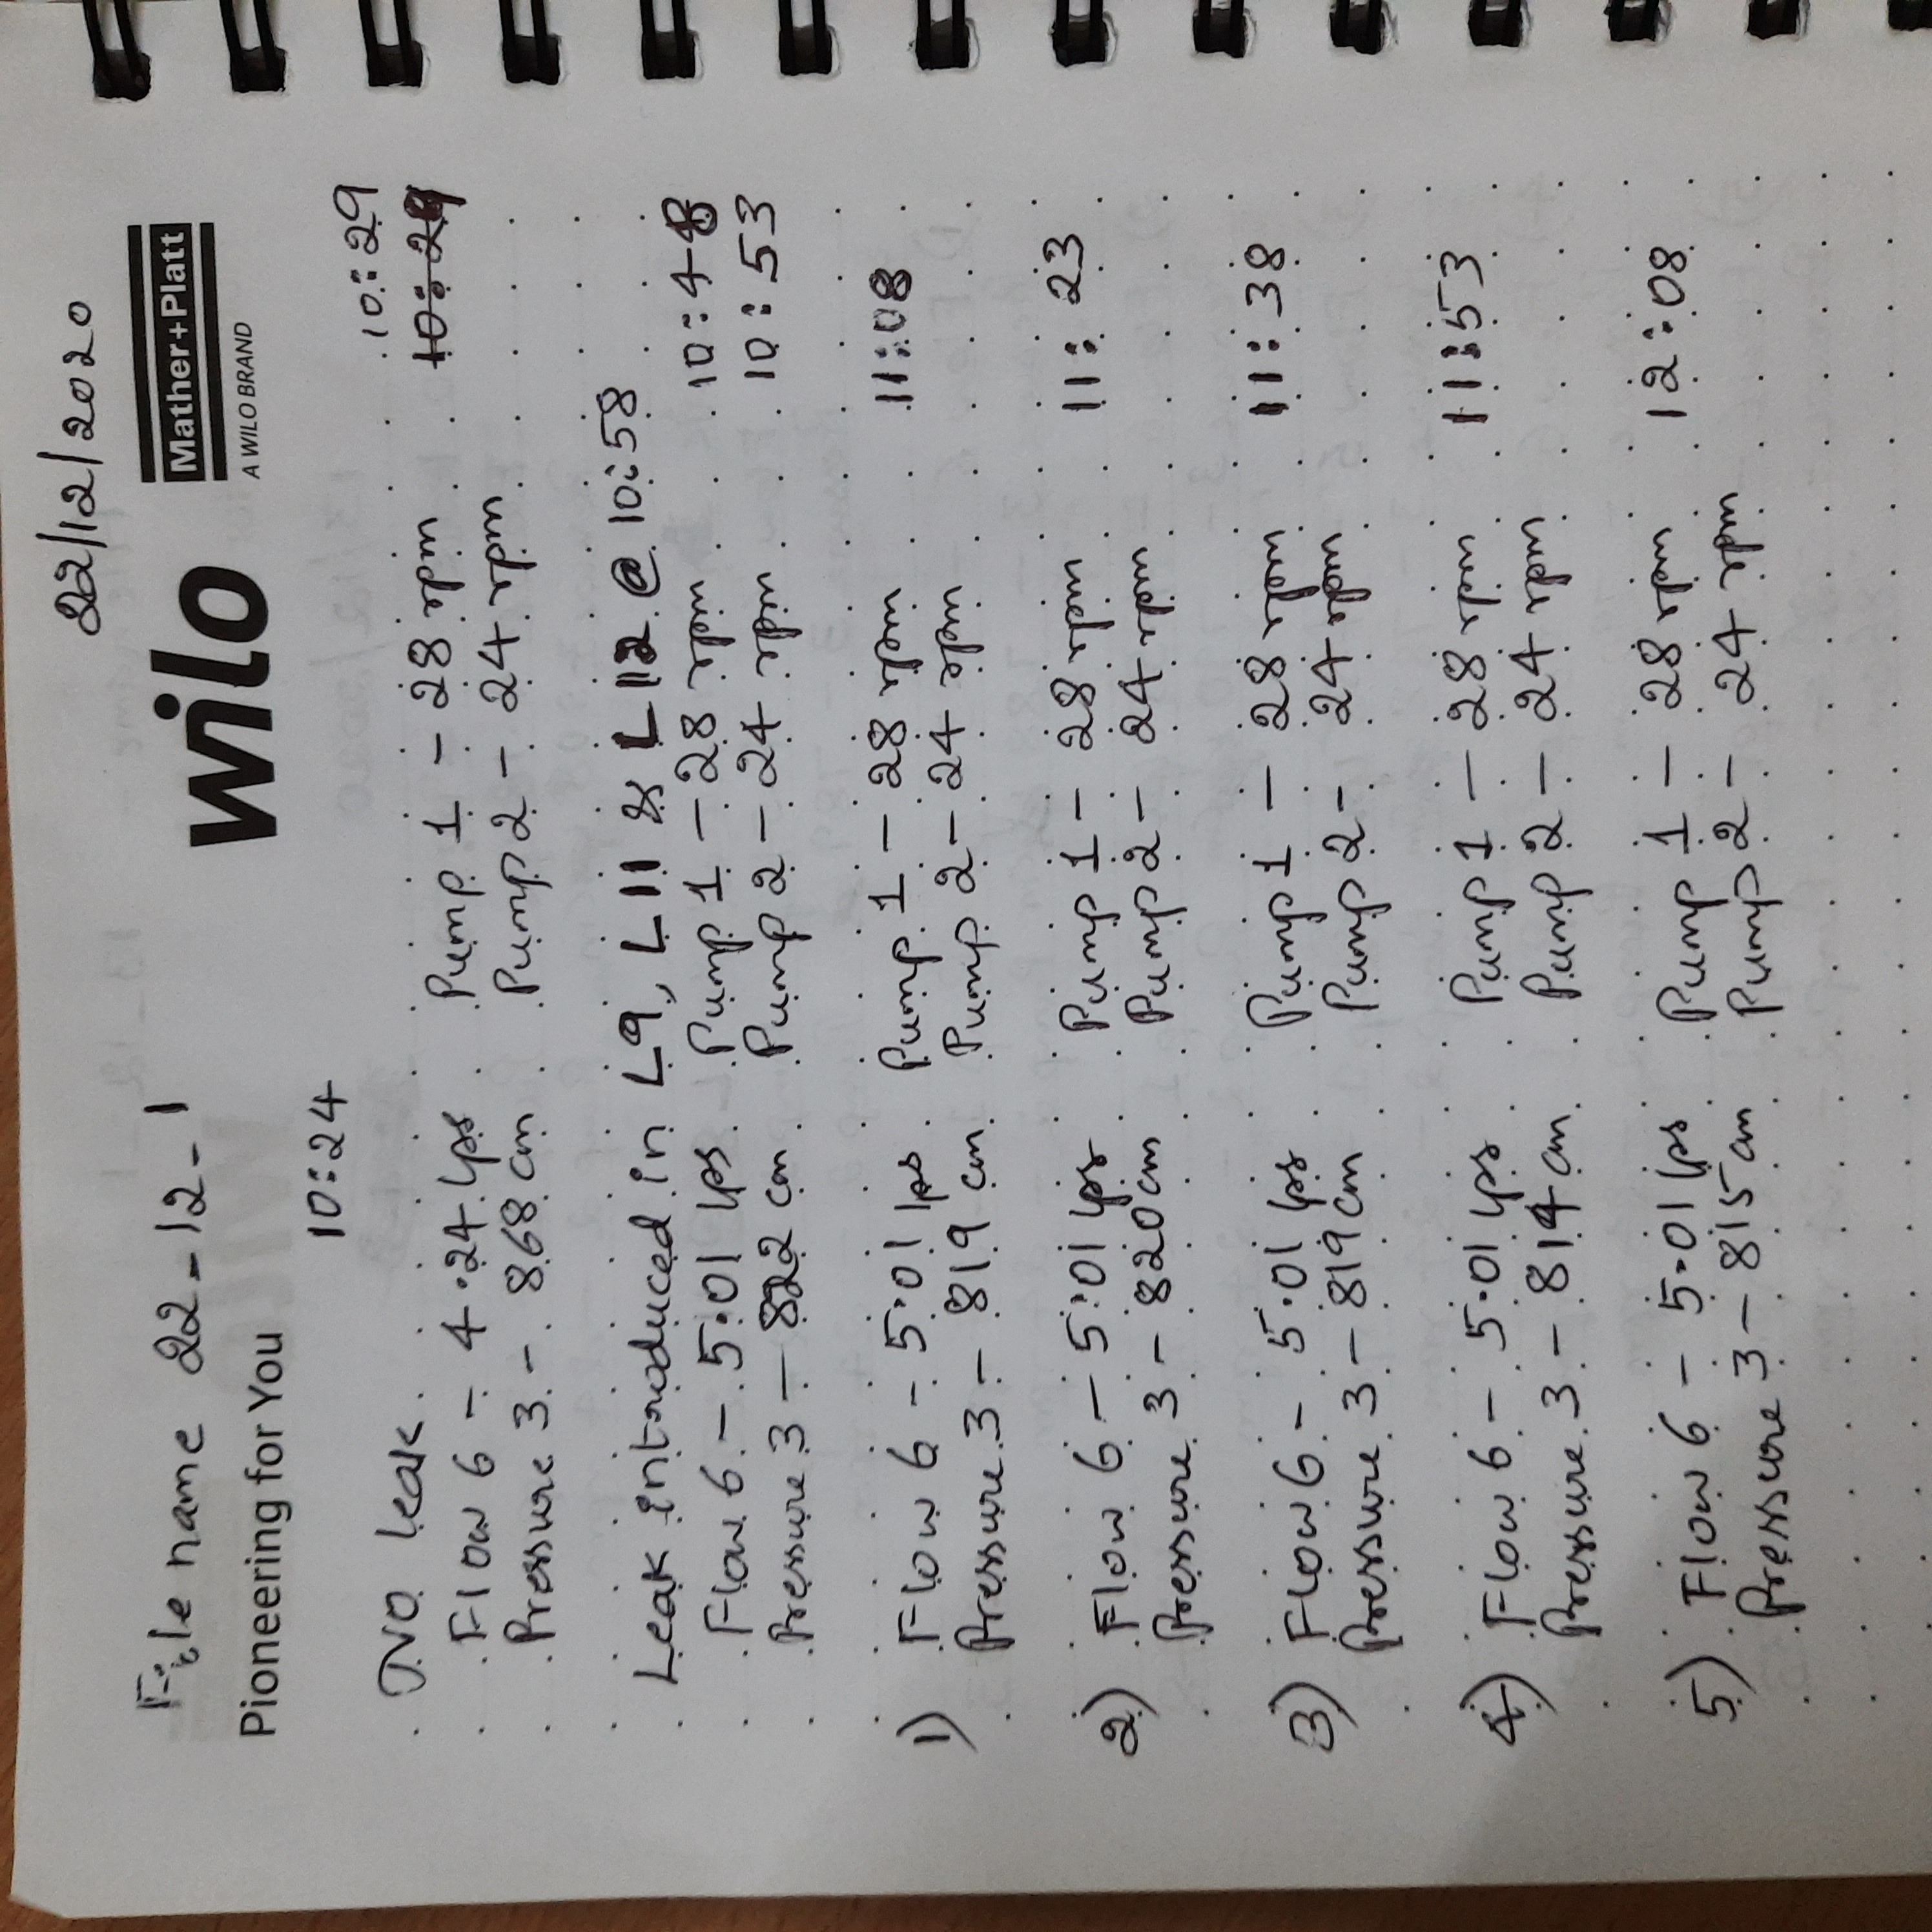 22/12/2020
File name 22-12-1
wilo
Mather+Platt
A WILO BRAND
Pioneering for You
10:24
NO leak 10:29
Flow 6 - 4.24 lps Pump 1 - 28 rpm 10:29
Pressure 3 - 868 cm Pump 2 - 24 rpm
Leak introduced in L9, L11 & L12 @ 10:58
Flow 6 - 5.01 lps Pump 1 - 28 rpm 10:48
Pressure 3 - 822 cm Pump 2 - 24 rpm 10:53
1) Flow 6 - 5.01 lps Pump 1 - 28 rpm 11:08
Pressure 3 - 819 cm Pump 2 - 24 rpm
2) Flow 6 - 5.01 lps Pump 1 - 28 rpm 11:23
Pressure 3 - 820 cm Pump 2 - 24 rpm
3) Flow 6 - 5.01 lps Pump 1 - 28 rpm 11:38
Pressure 3 - 819 cm Pump 2 - 24 rpm
4) Flow 6 - 5.01 lps Pump 1 - 28 rpm 11:53
Pressure 3 - 814 cm Pump 2 - 24 rpm
5) Flow 6 - 5.01 lps Pump 1 - 28 rpm 12:08
Pressure 3 - 815 cm Pump 2 - 24 rpm